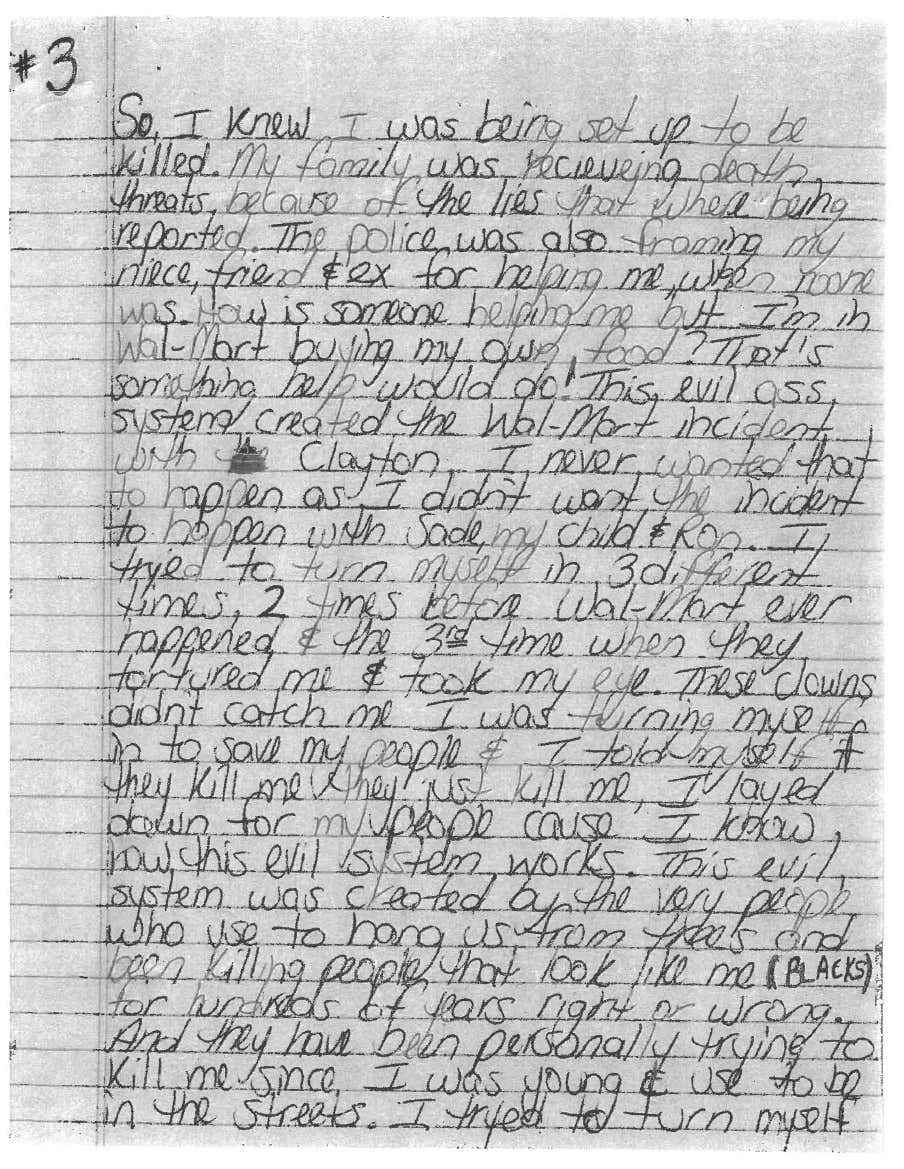 #3
So, I knew I was being set up to be
killed. My family was recieveing death
threats, because of the lies that where being
reported. The police was also framing my
niece, friend & ex for helping me, when noone
was. How is someone helping me but I'm in
Wal-Mart buying my own food? That's
something help would do! This evil ass
system created the Wal-Mart incident
with Clayton. I never wanted that
to happen as I didn't want the incident
to happen with Sade, my child & Ron. I
tryed to turn myself in 3 different
times, 2 times before Wal-Mart ever
happened & the 3rd time when they
tortured me & took my eye. These clowns
didnt catch me I was turning myself
in to save my people & I told myself if
they kill me they just kill me, I layed
down for my people cause I know
how this evil system works. This evil
system was created by the very people
who use to hang us from trees and
been killing people that look like me (BLACKS)
for hundreds of years right or wrong.
And they have been personally trying to
kill me since I was young & use to be
in the streets. I tryed to turn myself